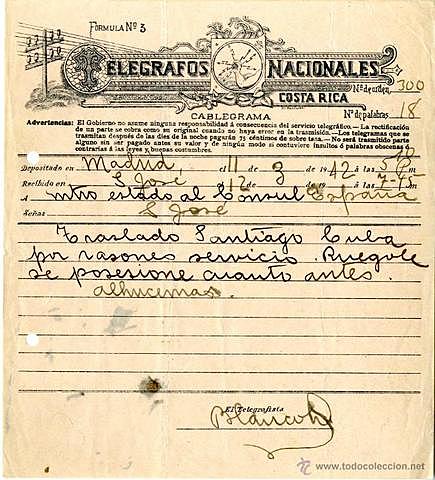 FÓRMULA Nº 3
TELEGRAFOS NACIONALES
COSTA RICA
Nº de orden, 300
CABLEGRAMA
Nº de palabras, 18
Advertencias: El Gobierno no asume ninguna responsabilidad á consecuencia del servicio telegráfico.—La rectificación
de un parte se cobra como su original cuando no haya error en la trasmisión.—Los telegramas que se
trasmitan después de las diez de la noche pagarán 75 céntimos de sobre tasa.—No será trasmitido parte
alguno sin ser pagado antes su valor y de ningún modo si contuviere insultos ó palabras obscenas ó
contrarias á las leyes y buenas costumbres.
Depositado en Madrid, el 11 de 3 de 1942 á las
Recibido en S José 12 de de 19 á las
A mtro estado al Cónsul España
Señas S José
Traslado Santiago Cuba
por razones servicio. Ruegole
se posesione cuanto antes.
alhucemas.
El Telegrafista
Blancoh
www.todocoleccion.net